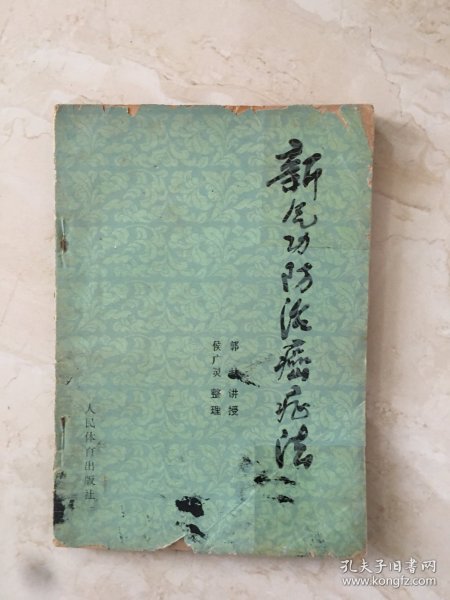 新气功防治癌症法
郭 讲授
侯广灵 整理
人民体育出版社
孔夫子旧书网
www.kongfz.com